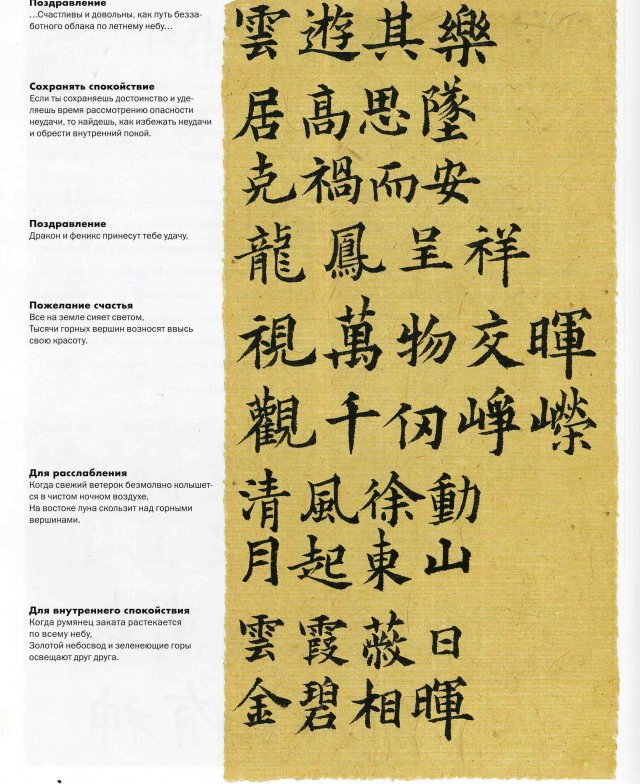 Поздравление
…Счастливы и довольны, как путь безза-
ботного облака по летнему небу…
雲遊其樂
Сохранять спокойствие
Если ты сохраняешь достоинство и уде-
ляешь время рассмотрению опасности
неудачи, то найдешь, как избежать неудачи
и обрести внутренний покой.
居高思墜
克禍而安
Поздравление
Дракон и феникс принесут тебе удачу.
龍鳳呈祥
Пожелание счастья
Все на земле сияет светом,
Тысячи горных вершин возносят ввысь
свою красоту.
視萬物交暉
觀千仞崢嶸
Для расслабления
Когда свежий ветерок безмолвно колышет-
ся в чистом ночном воздухе,
На востоке луна скользит над горными
вершинами.
清風徐動
月起東山
Для внутреннего спокойствия
Когда румянец заката растекается
по всему небу,
Золотой небосвод и зеленеющие горы
освещают друг друга.
雲霞日
金碧相暉